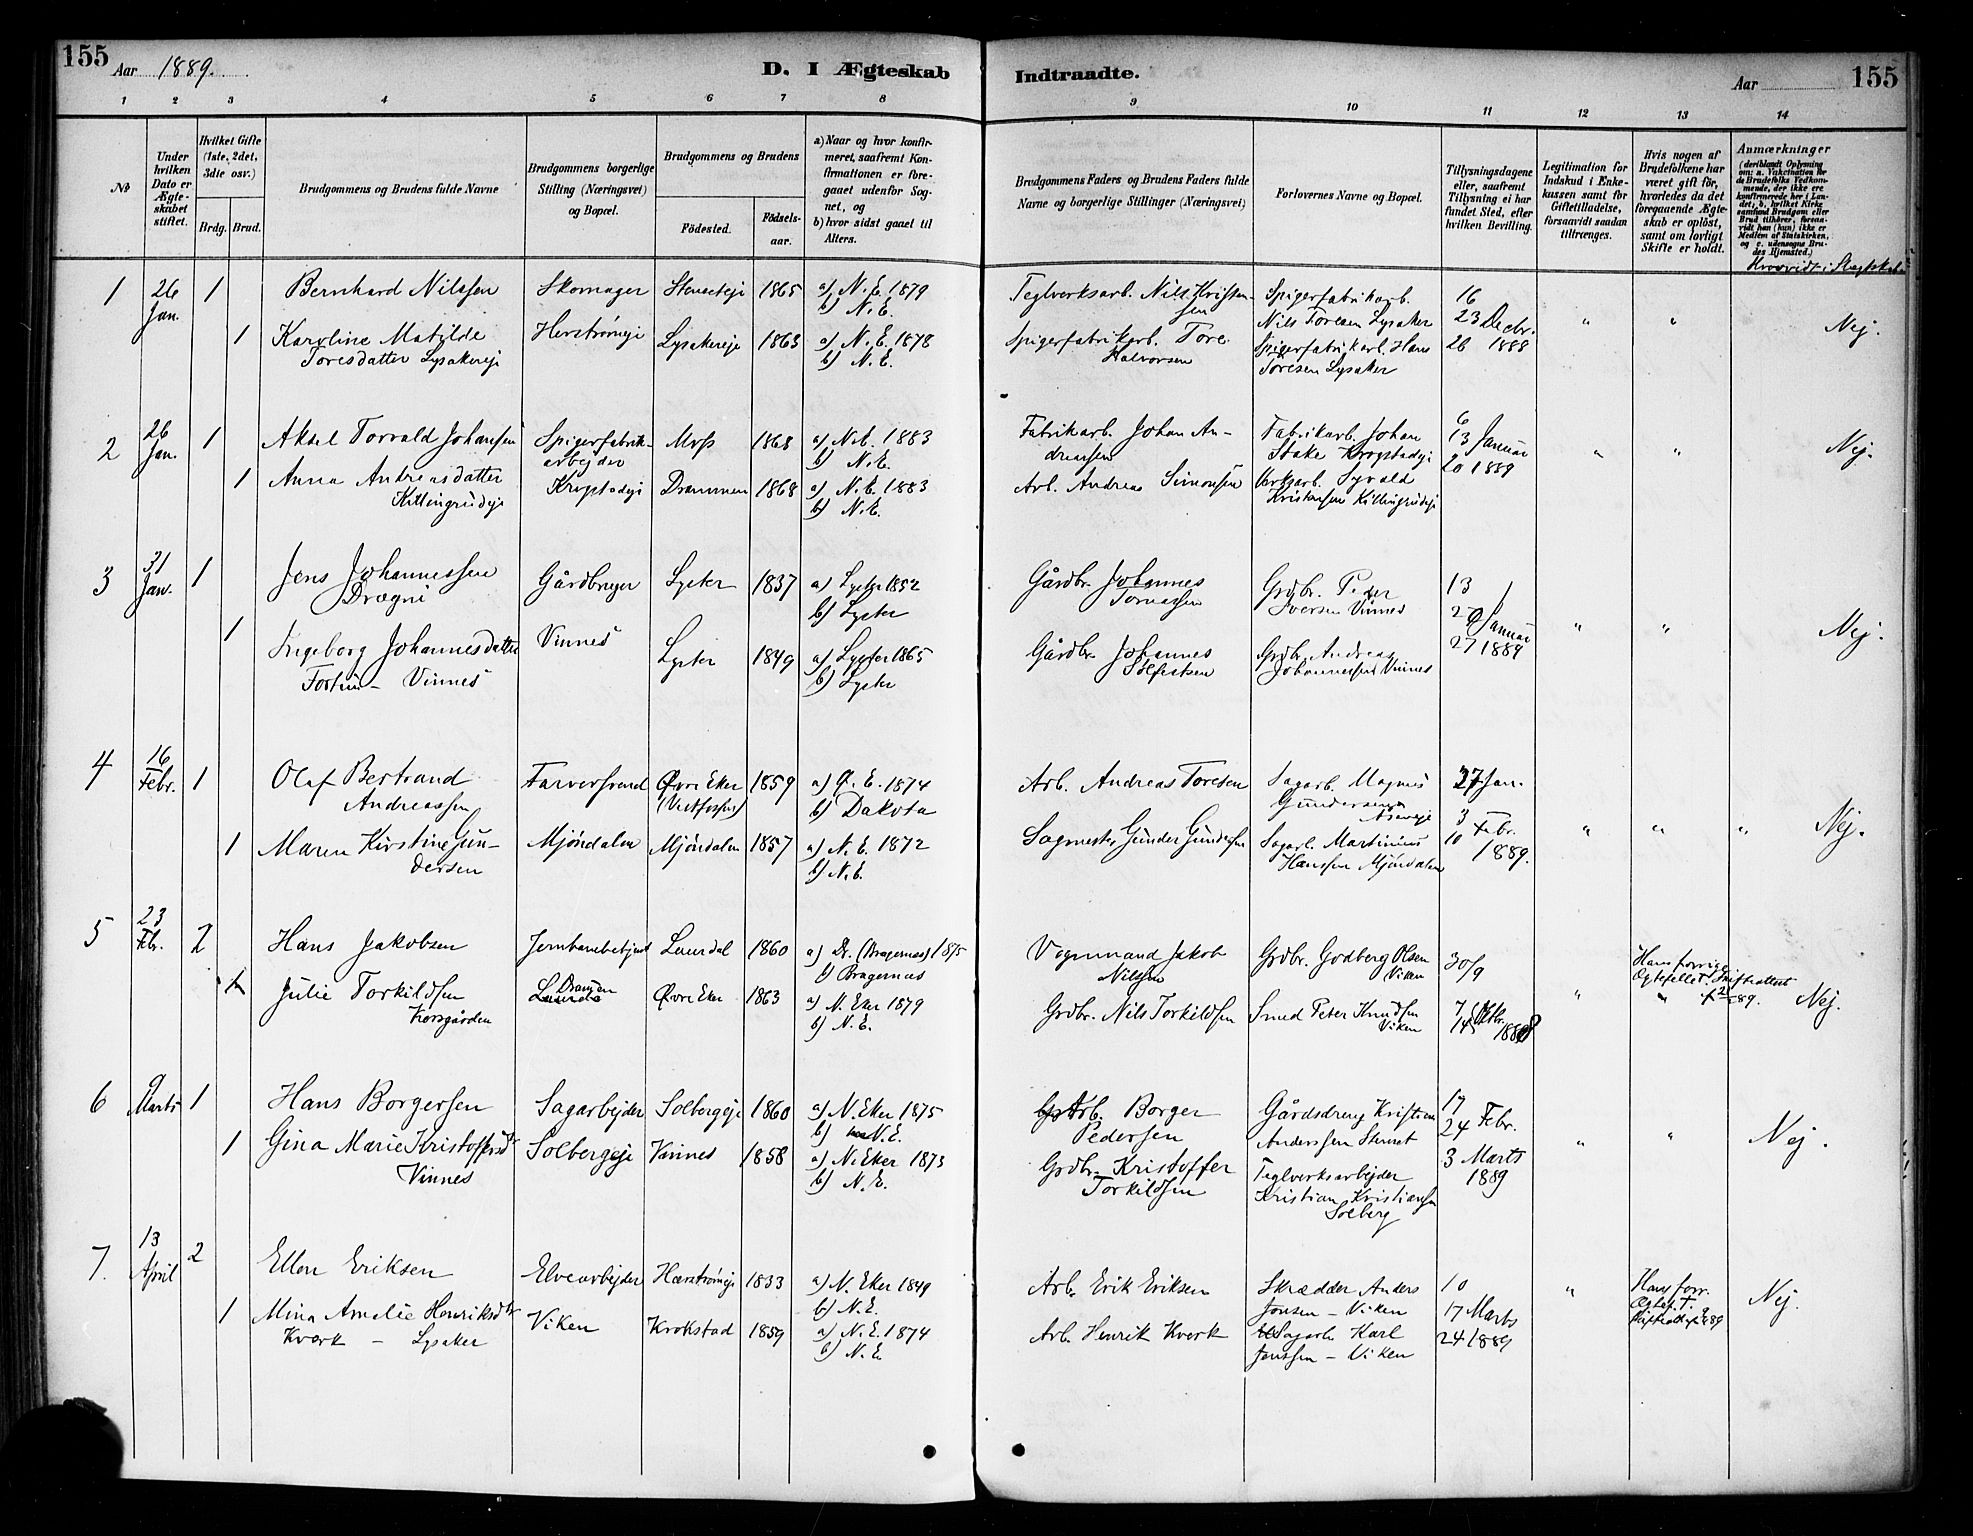 155 Aar 1889. D. I Ægteskab Indtraadte. Aar 155
1 2 3 4 5 6 7 8 9 10 11 12 13 14
No
Under hvilken Dato er Ægteskabet stiftet.
Hvilket Gifte (1ste, 2det, 3die osv.)
Brdg. Brud.
Brudgommens og Brudens fulde Navne
Brudgommens borgerlige Stilling (Næringsvei) og Bopæl.
Brudgommens og Brudens
Födested. Födselsaar.
a) Naar og hvor konfirmeret, saafremt Konfirmationen er foregaaet udenfor Sognet, og
b) hvor sidst gaaet til Alters.
Brudgommens Faders og Brudens Faders fulde Navne og borgerlige Stillinger (Næringsvei)
Forlovernes Navne og Bopæl.
Tillysningsdagene eller, saafremt Tillysning ei har fundet Sted, efter hvilken Bevilling.
Legitimation for Indskud i Enkekassen samt for Giftetilladelse, forsaavidt saadan tiltrænges.
Hvis nogen af Brudefolkene har været gift för, hvorledes da det foregaaende Ægteskab er oplöst, samt om lovligt Skifte er holdt.
Anmærkninger
(deriblandt Oplysning om: a. Vakcination for de Brudefolks Vedkommende, der ikke ere konfirmerede her i Landet; b. hvilket Kirkesamfund Brudgom eller Brud tilhörer, forsaavidt han (hun) ikke er Medlem af Statskirken, og c. udensogns Brudes Hjemsted.)
Hvorvidt i Slægtskab.
1 26 Jan. 1 Bernhard Nilssen Skomager 1865 a) N.E. 1879 Teglverksarb. Nils Kristensen Spigerfabrikarb. 16
b) N.E. Nils Toresen Lysaker 23 Decbr.
1 Karoline Matilde Herstrømeje Lysakereje 1863 a) N.E. 1878 Spigerfabrikarb. Tore Spigerfabrikarb. Hans 26 1888 " " Nej.
Toresdatter Lysakereje b) N.E. Halvorsen Toresen Lysaker
2 26 Jan. 1 Aksel Torvald Johansen Spigerfabrik- Moss 1868 a) N.E. 1883 Fabrikarb. Johan An- Fabrikarb. Johan 6
arbejder b) N.E. dreassen Stake Krogstadeje 13 Januar Nej.
1 Anna Andreasdatter Krogstadeje Drammen 1868 a) N.E. 1883 Arb. Andreas Simonsen Verksarb. Syvald 20 1889 " "
Killingrudeje b) N.E. Kristensen Killingrudeje
3 31 Jan. 1 Jens Johannessen Gårdbruger Lyster 1837 a) Lyster 1852 Gårdbr. Johannes Grdbr. Peder 13
Drægni b) Lyster Tomassen Iversen Vinnes 20 Januar
1 Ingeborg Johannesdatter Vinnes Lyster 1849 a) Lyster 1865 Gårdbr. Johannes Grdbr. Andreas 27 1889 " " Nej.
Fortun - Vinnes b) Lyster Solfestsen Johannessen Vinnes
4 16 Febr. 1 Olaf Bertrand Farversvend Øvre Eker 1859 a) Ø.E. 1874 Arb. Andreas Toresen Sagarb. Magnus 27 Jan.
Andreassen (Vestfossen) b) Dakota Gundersen 3 Febr.
1 Maren Kirstine Gun- Mjøndalen Mjøndalen 1857 a) N.E. 1872 Sagmester Gunder Gundersen Sagarb. Martinius 10 1889. " " " Nej.
dersen b) N.E. Hanssen Mjøndalen
5 23 Febr. 2 Hans Jakobsen Jernbanebetjent Leirdal 1860 a) Dr. (Bragernæs) 1875 Vognmand Jakob Grdbr. Godberg Olsen 30/9 Hans forrige
b) Bragernæs Nilsen Viken Egtefelle
1 Julie Torkildsen Drangen Øvre Eker 1863 a) N. Eker 1879 Grdbr. Nils Torkildsen Smed Peter Knudsen 7 Oktbr. " " Nej.
Korsgården b) N.E. Viken 14 1888
6 9 Marts 1 Hans Borgersen Sagarbejder Solbergeje 1860 a) N. Eker 1875 Arb. Borger Gårdsdreng Kristian 17
b) N.E. Pedersen Anderssen Stenset 24 Febr.
1 Gina Marie Kristoffersdr Solbergeje Vinnes 1858 a) N. Eker 1873 Grdbr. Kristoffer Teglverksarbejder 3 Marts " " Nej.
Vinnes b) N.E. Torkildsen Kristian Kristiansen 1889
Solberg
7. 13 April 2 Ellen Eriksen Elvearbejder Hærstrømeje 1833 a) N. Eker 1849 Arb. Erik Eriksen Skrædder Anders 10 " Hans forr. Nej.
b) N.E. Jonsen - Viken 17 Marts Egtef. †.
1 Mina Amalie Henriksdtr Viken Krokstad 1859 a) N.E. 1874 Arb. Henrik Kværk Sagarb. Karl 24 1889
Kværk - Lysaker b) N.E. Jonssen - Viken